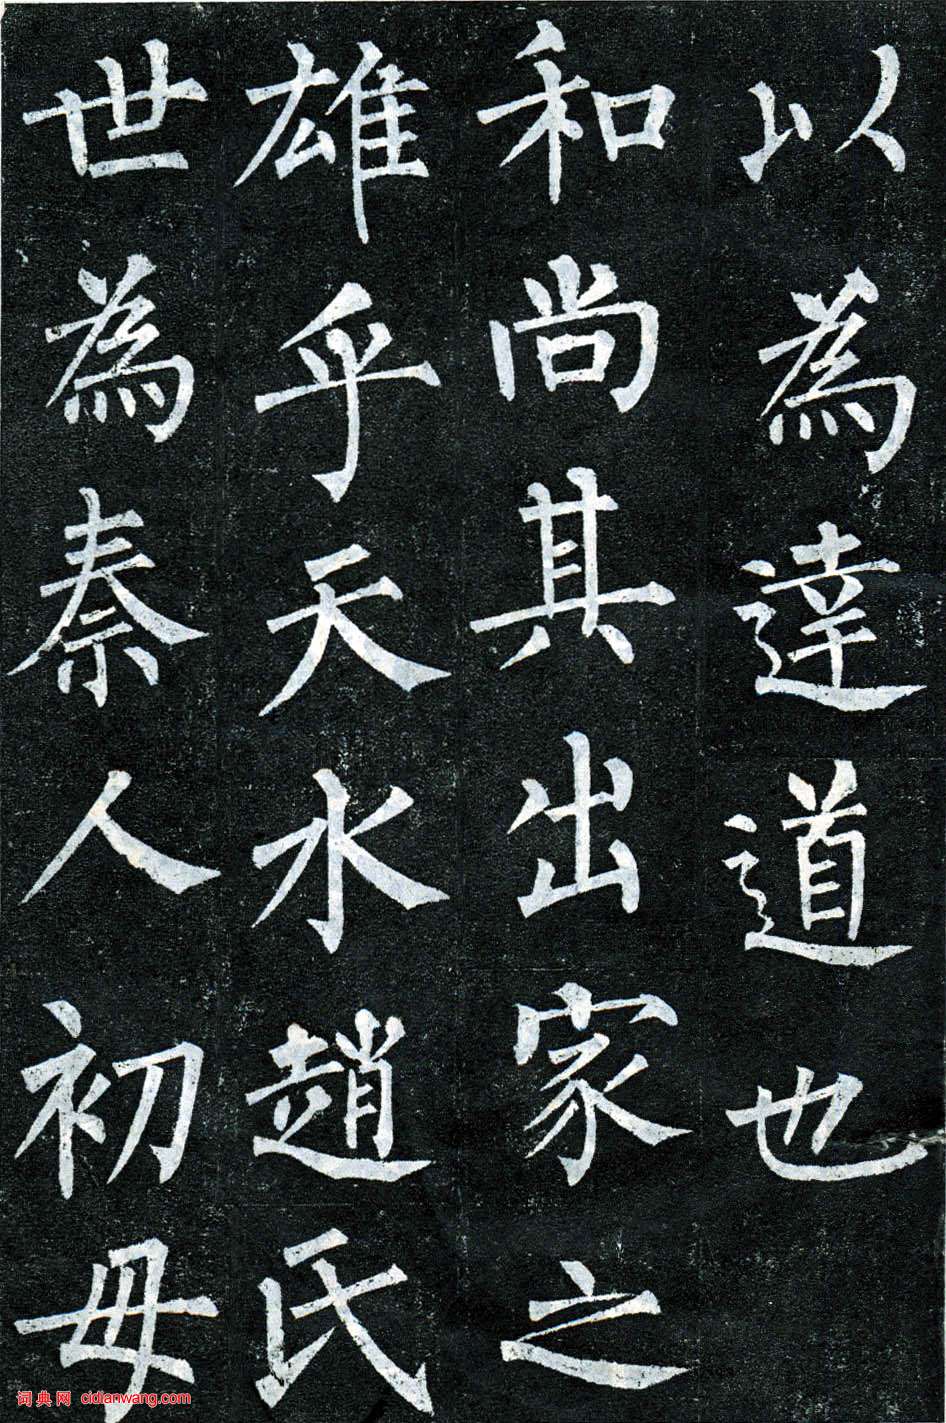 以為達道也
和尚其出家之
雄乎天水趙氏
世為秦人初母
词典网 cidianwang.com